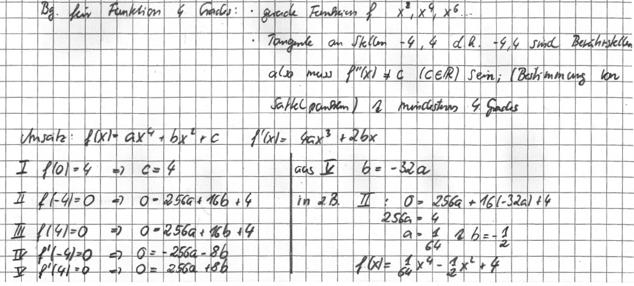 Bg. für Funktion 4 Grades: · gerade Funktion f x², x⁴, x⁶...
· Tangente an Stellen -4, 4 d.h. -4,4 sind Berührstellen
also muss f''(x) ≠ c (c∈ℝ) sein; (Bestimmung von
Sattelpunkten) mindestens 4. Grades
Ansatz: f(x)= ax⁴ + bx² + c f'(x)= 4ax³ + 2bx
I f(0)=4 => c=4
II f(-4)=0 => 0=256a+16b+4
III f(4)=0 => 0=256a+16b+4
IV f'(-4)=0 => 0=-256a-8b
V f'(4)=0 => 0=256a+8b
aus V b=-32a
in zB. II : 0=256a+16(-32a)+4
256a=4
a=1/64 b=-1/2
f(x)= 1/64 x⁴ - 1/2 x² + 4